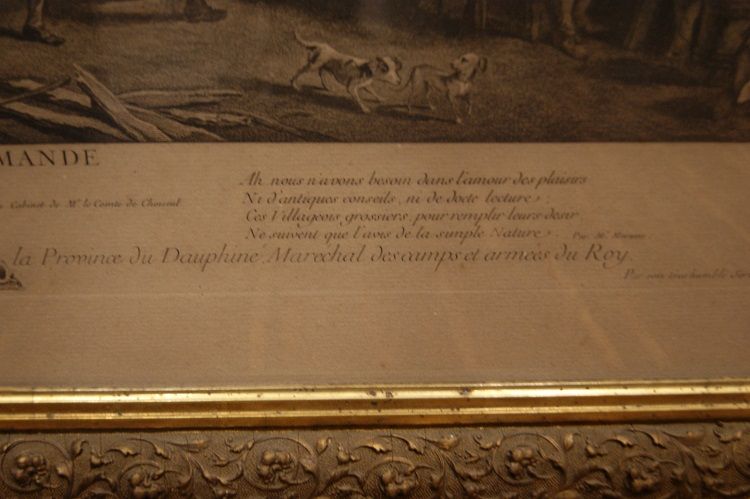 MANDE
Cabinet de Mr. le Comte de Choiseul
Ah nous n'avons besoin dans l'amour des plaisirs
Ni d'antiques conseils, ni de docte lecture;
Ces Villageois grossiers, pour remplir leurs desir
Ne suivent que l'avis de la simple Nature. Par Mr. Moraine.
la Province du Dauphiné, Marechal des camps et armées du Roy
Par son tres humble Ser